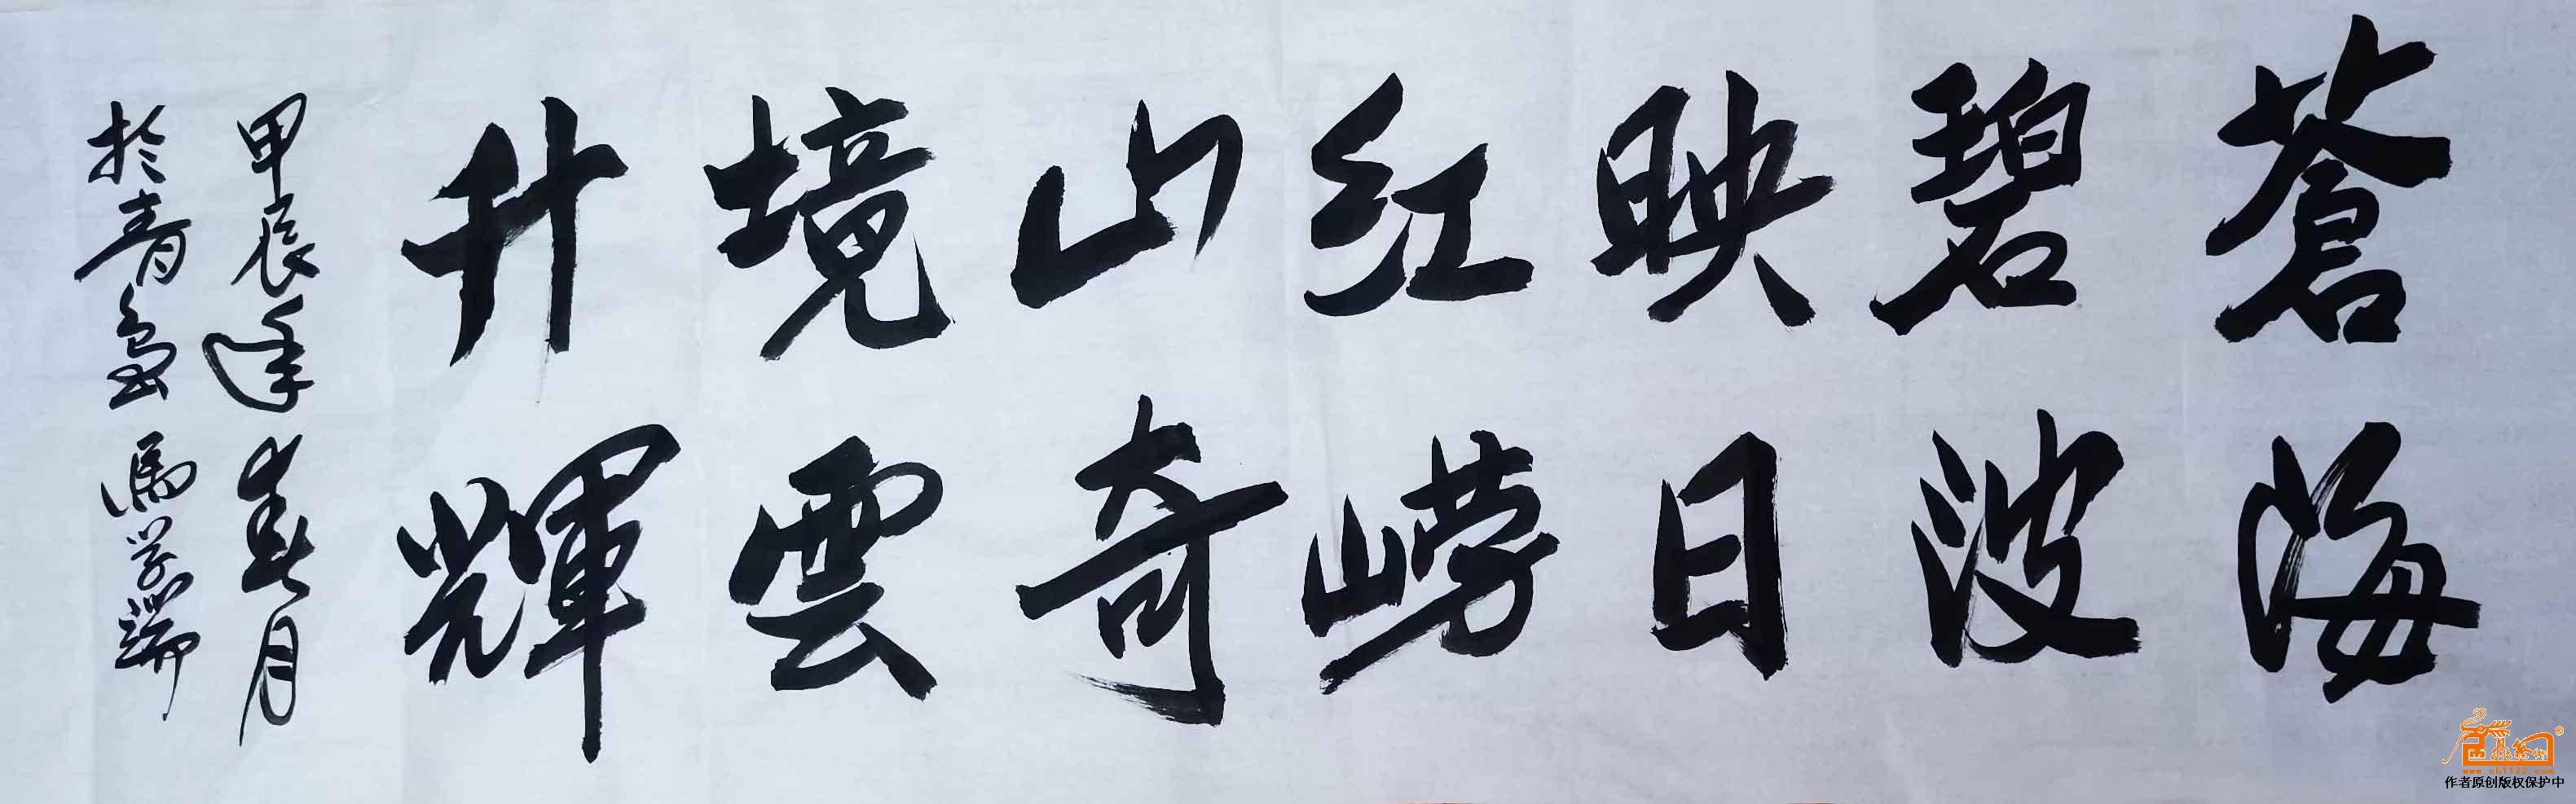 蒼海
碧波
映日
红崂
山奇
境雲
升輝
甲辰年春月
於青岛馮学瑞
www.sh1122.com
作者原创版权保护中